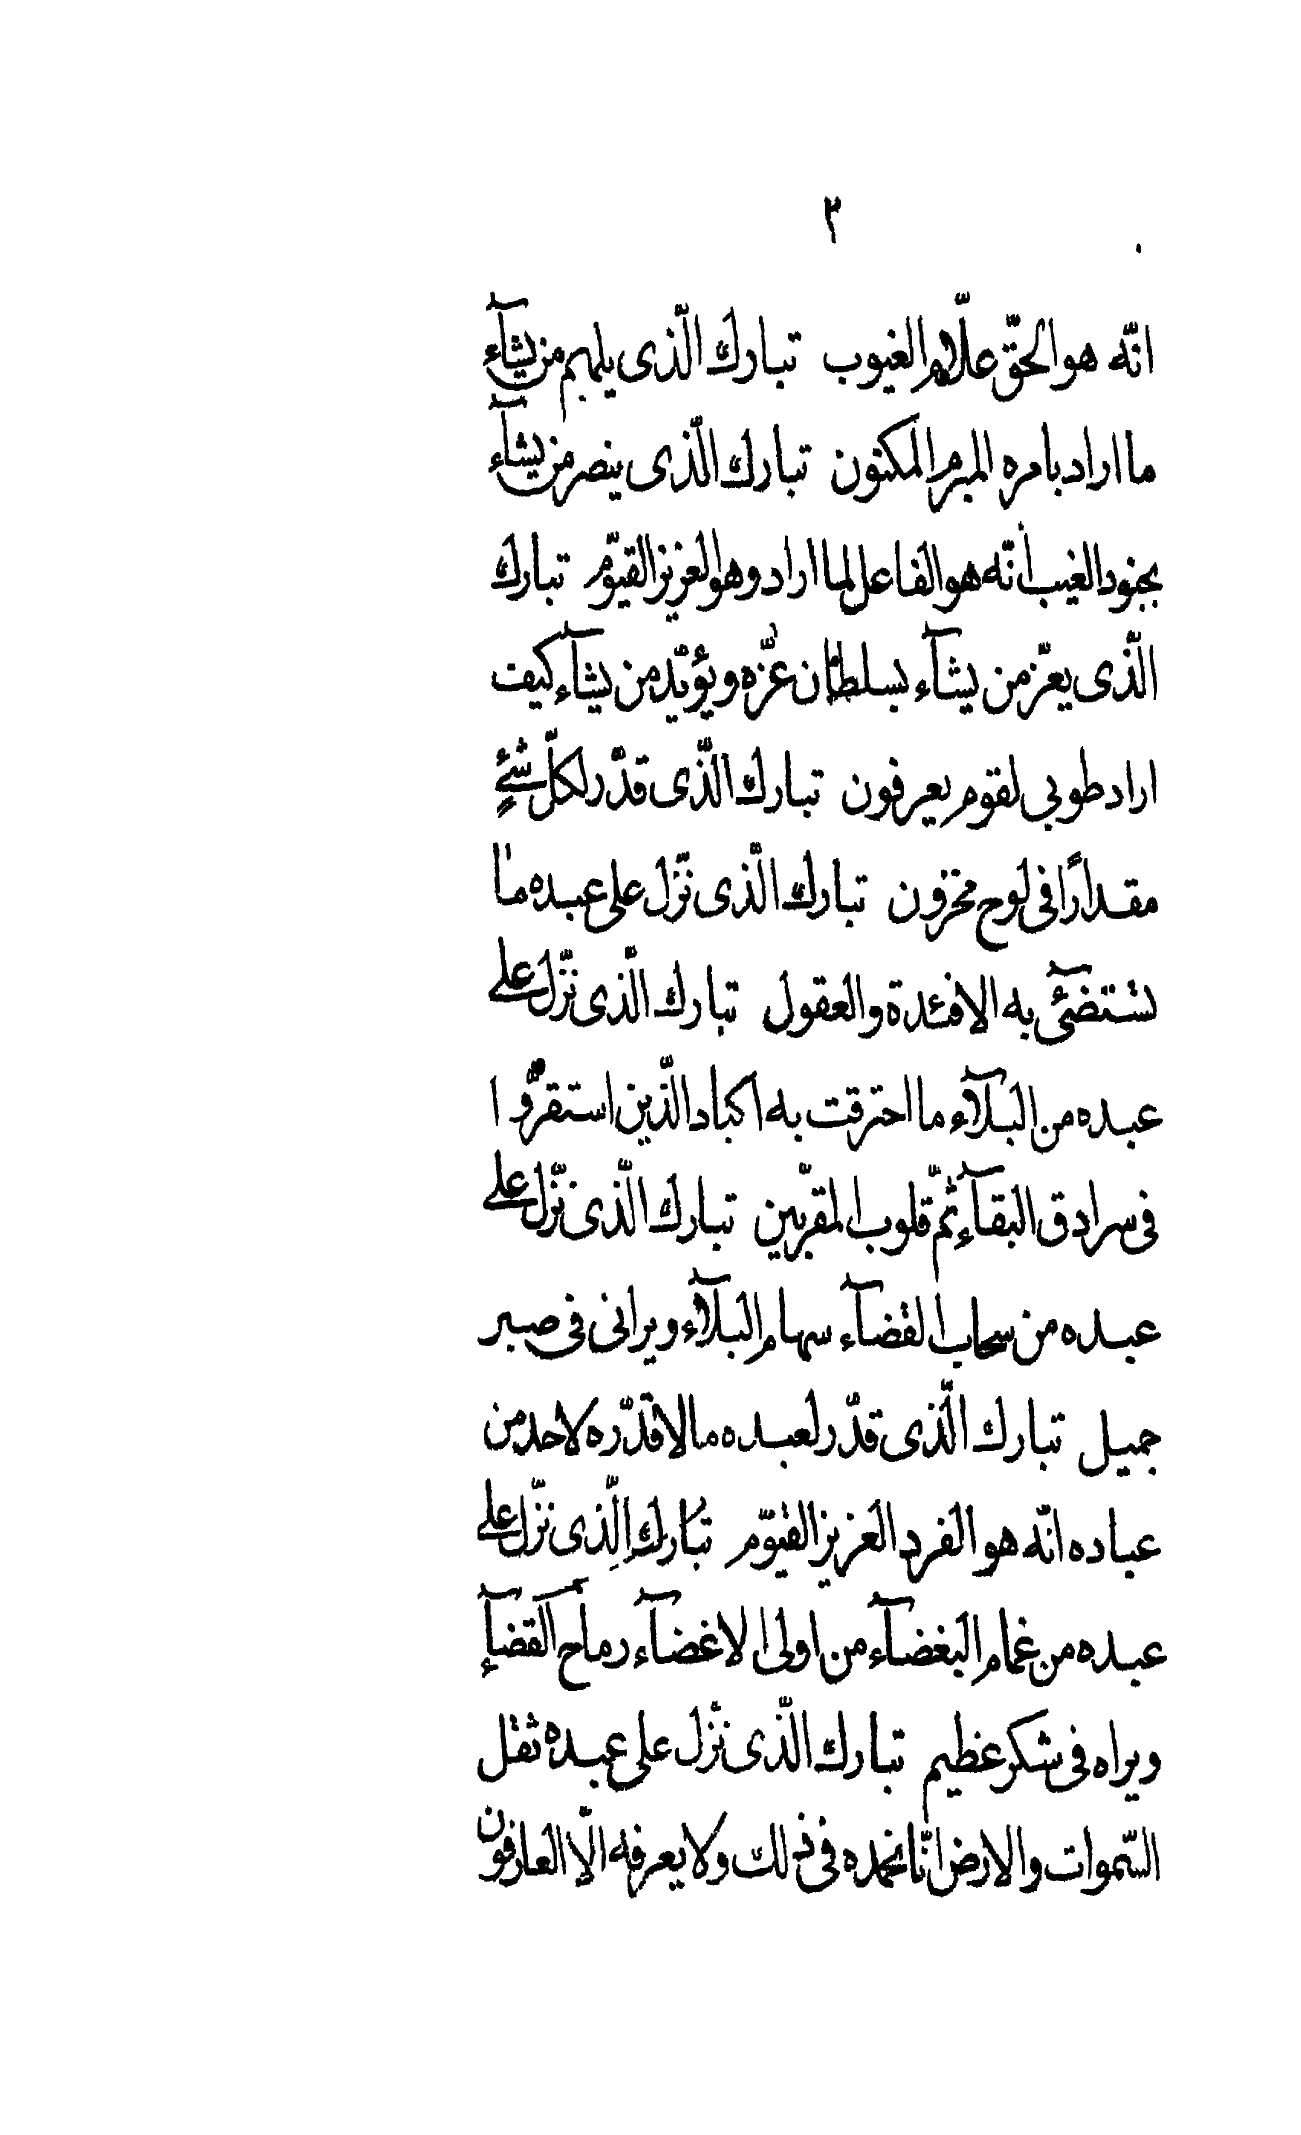 ٣
انّه هو الحقّ علّام الغيوب تبارك الّذى يلهم من يشآء
ما اراد بامره المبرم المكنون تبارك الّذى ينصر من يشآء
بجنود الغيب انّه هو الفاعل لما اراد و هو العزيز القيّوم تبارك
الّذى يعزّ من يشآء بسلطان عزّه و يؤيّد من يشآء كيف
اراد طوبى لقوم يعرفون تبارك الّذى قدّر لكلّ شئٍ
مقدارًا فى لوح مخزون تبارك الّذى نزّل على عبده ما
تستضئ به الافئدة و العقول تبارك الّذى نزّل على
عبده من البلآء ما احترقت به اكباد الّذين استقرّوا
فى سرادق البقآء ثمّ قلوب المقرّبين تبارك الّذى نزّل على
عبده من سحاب القضآء سهام البلآء و يرانى فى صبر
جميل تبارك الّذى قدّر لعبده ما لا قدّره لاحد من
عباده انّه هو الفرد العزيز القيّوم تبارك الّذى نزّل على
عبده من غمام البغضآء من اولى الاغضآء رماح القضآء
و يراه فى شكر عظيم تبارك الّذى نزّل على عبده ثقل
السّموات و الارض انّا نحمده فى ذلك و لا يعرفه الّا العارفون